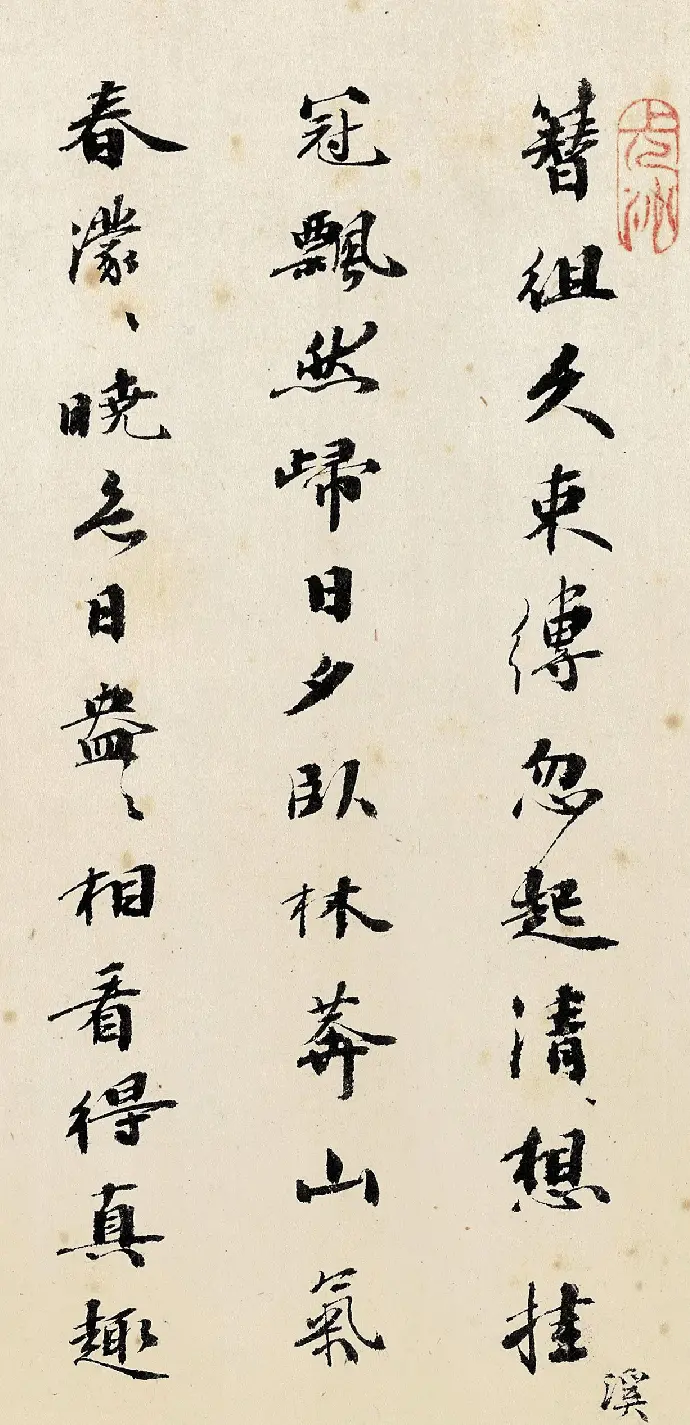 簪組久束縛忽起清、想挂
溪
冠飄然歸日夕臥林莽山氣
春濛〻曉色日盎〻相看得真趣